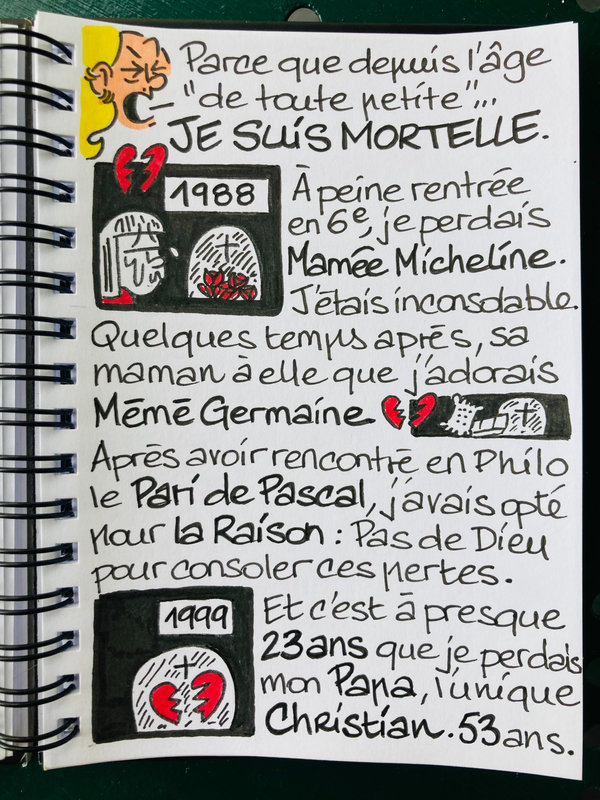 Parce que depuis l'âge
"de toute petite"...
JE SUiS MORTELLE.
1988
À peine rentrée
en 6e, je perdais
Mamée Micheline.
J'étais inconsolable.
Quelques temps après, sa
maman à elle que j'adorais
Mémé Germaine
Après avoir rencontré en Philo
le Pari de Pascal, j'avais opté
pour la Raison : Pas de Dieu
pour consoler ces pertes.
1999
Et c'est à presque
23 ans que je perdais
mon Papa, l'unique
Christian. 53 ans.